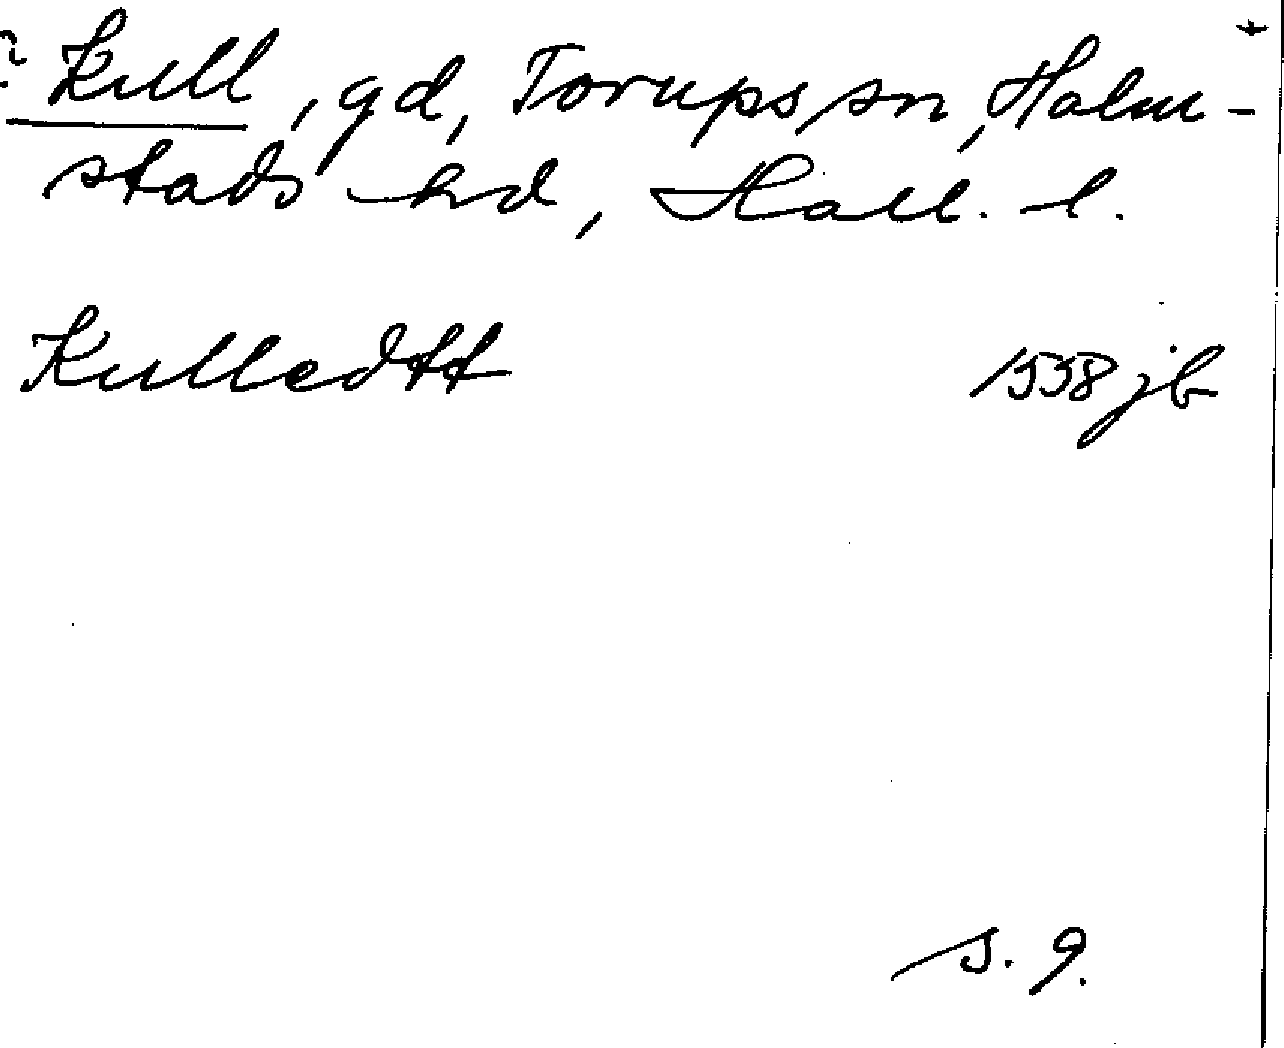 Kull, gd, Torups sn, Halm-
stads hd, Hall. l.
Kulledtt 1538 jb
s. 9.